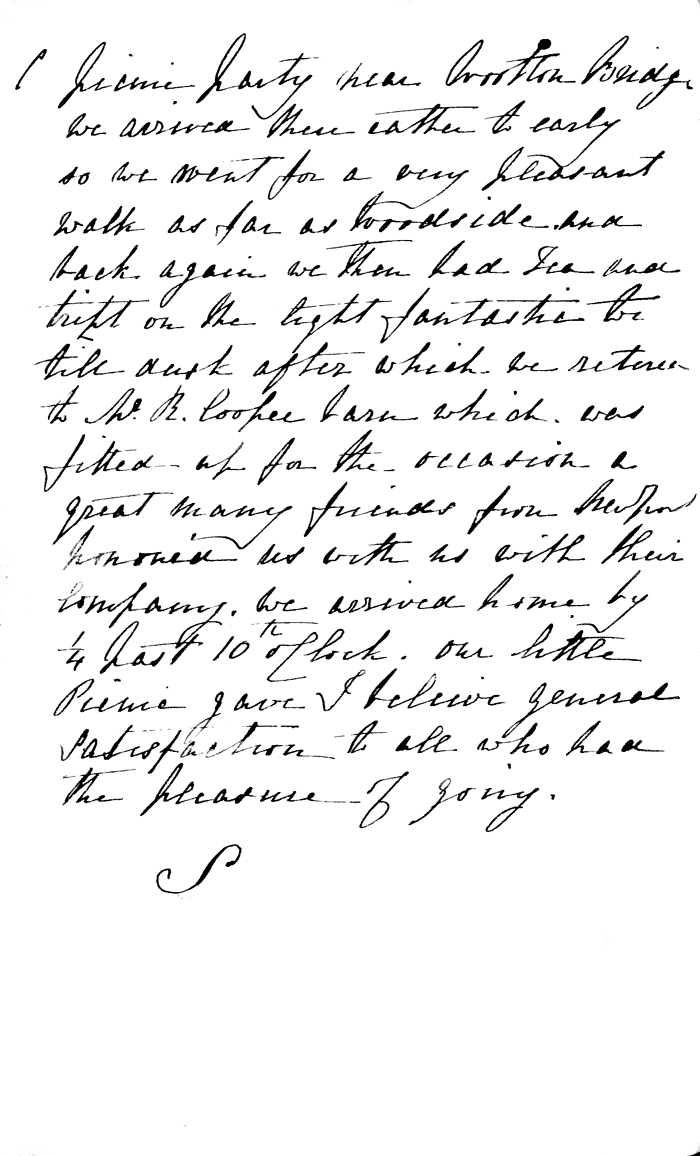 Picnic Party near Wootton Bridge
we arrived there rather to early
so we went for a very pleasant
walk as far as Woodside and
back again we then had Tea and
tript on the light fantastic toe
till dusk after which we return
to Mr. R. Cooper barn which was
fitted up for the occasion a
great many friends from Newport
honored us with us with their
Company. we arrived home by
1/4 Past 10th o'Clock. our little
Picnic gave I beleive general
Satisfaction to all who had
the pleasure of going.
S